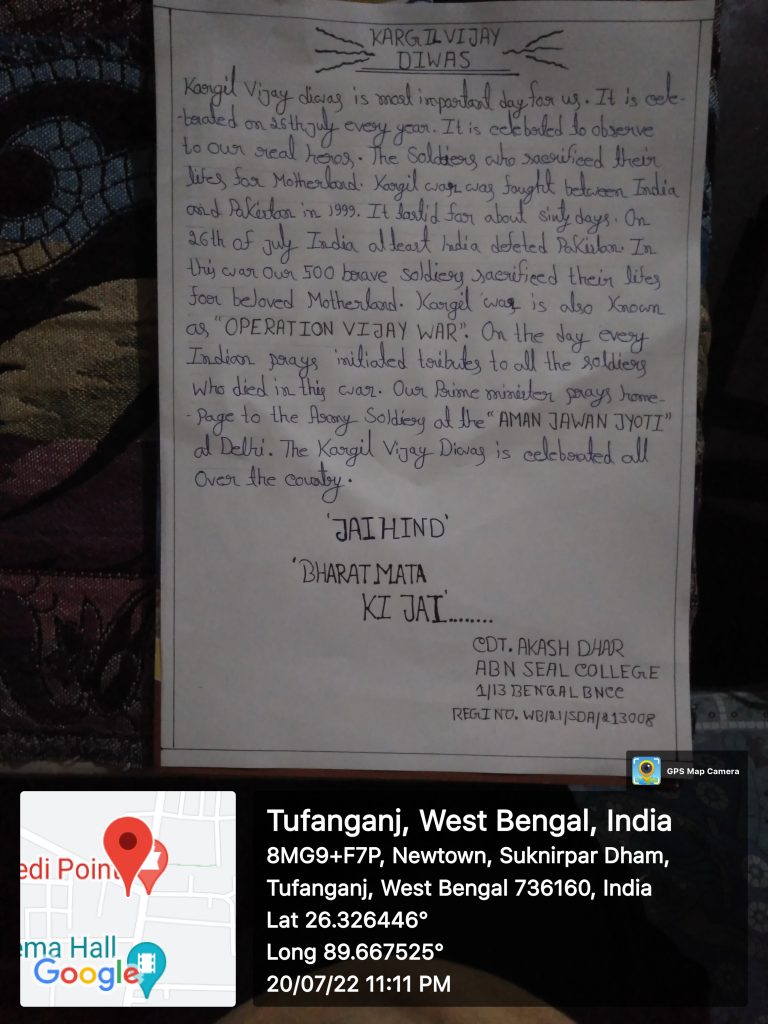 KARGIL VIJAY
DIWAS
Kargil Vijay diwas is most important day for us. It is cele-
-brated on 26th july every year. It is celebrated to observe
to our real heros. The Soldiers who sacrificed their
lifes for Motherland. Kargil war was fought between India
and Pakistan in 1999. It lastid for about sixty days. On
26th of july India atleast India defeted Pakistan. In
this war our 500 brave soldiers sacrificed their lifes
for beloved Motherland. Kargil war is also known
as "OPERATION VIJAY WAR". On the day every
Indian prays initiated tributes to all the soldiers
who died in this war. Our Prime minister prays home-
-page to the Army Soldiers at the "AMAN JAWAN JYOTI"
at Delhi. The Kargil Vijay Diwas is celebrated all
Over the country.
'JAI HIND'
'BHARAT MATA
KI JAI'........
CDT. AKASH DHAR
ABN SEAL COLLEGE
1/13 BENGAL BNCC
REGI NO. WB/21/SDA/213008
GPS Map Camera
Tufanganj, West Bengal, India
8MG9+F7P, Newtown, Suknirpar Dham,
Tufanganj, West Bengal 736160, India
Lat 26.326446°
Long 89.667525°
20/07/22 11:11 PM
edi Point
ema Hall
Google